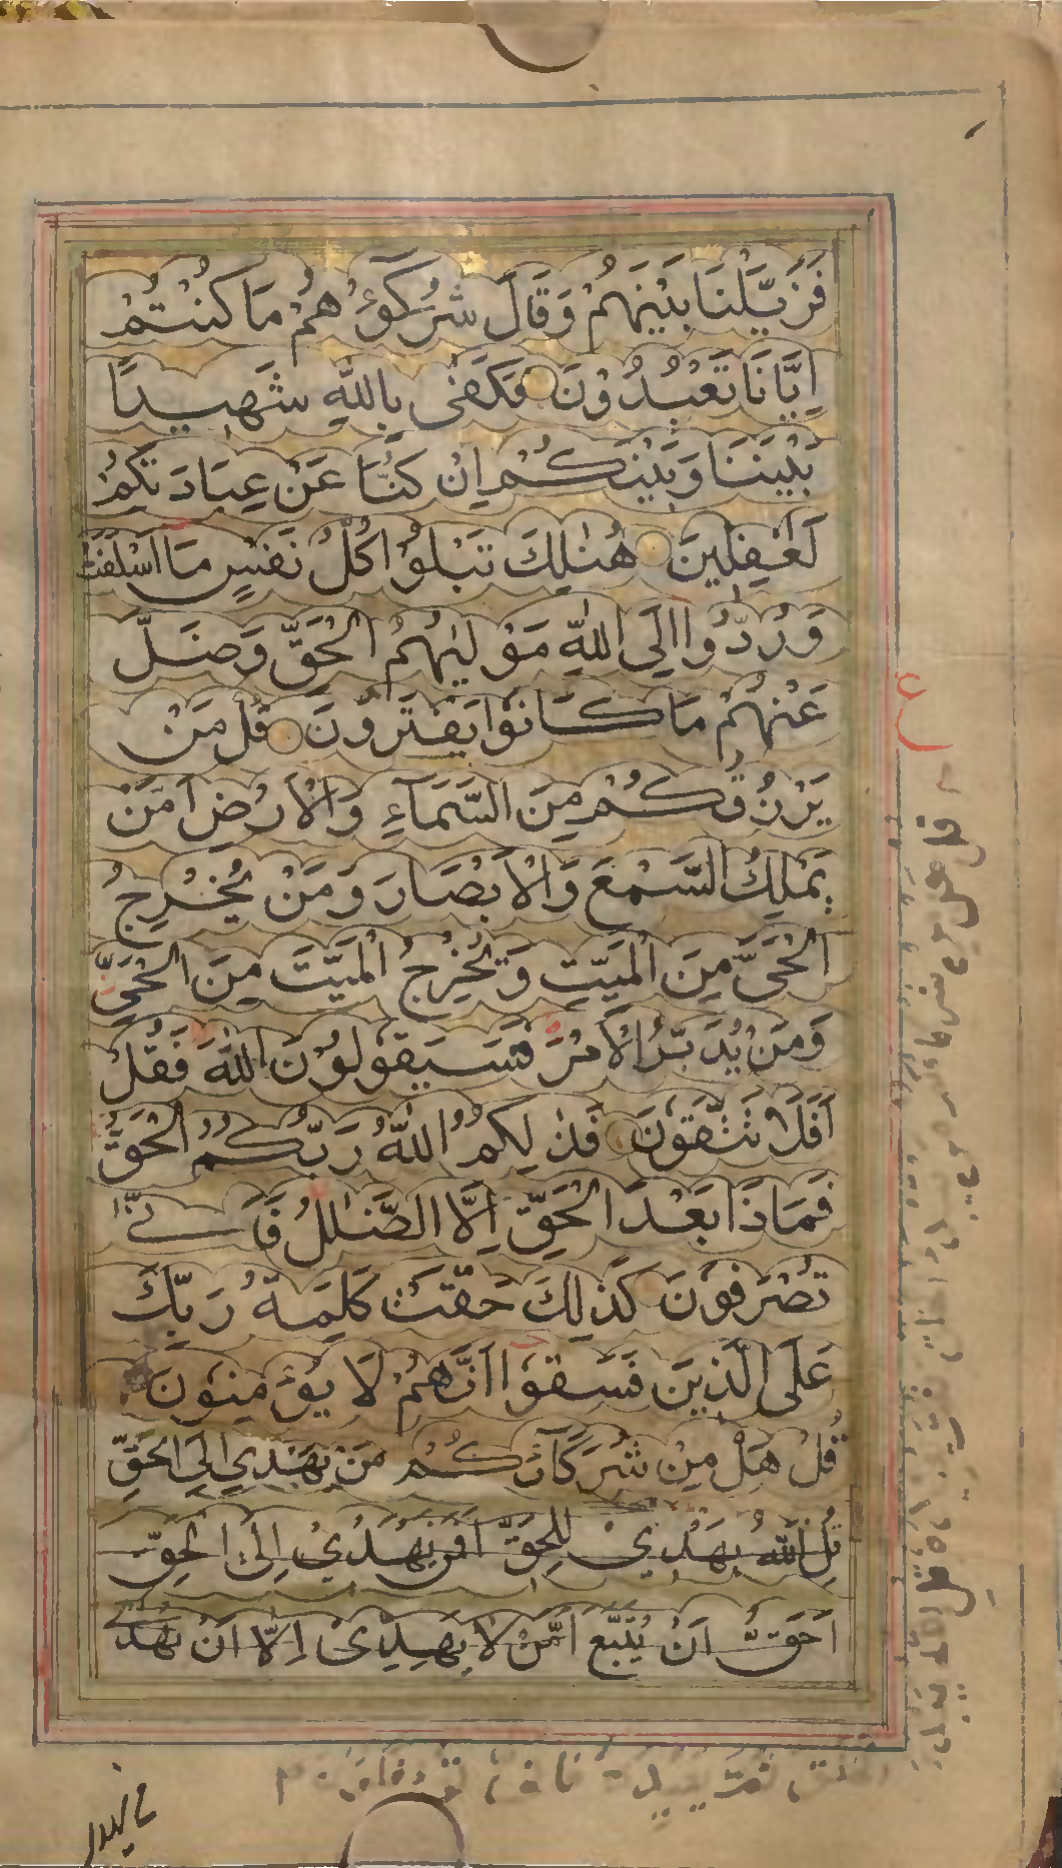 فَزَيَّلْنَا بَيْنَهُمْ وَقَالَ شُرَكَآؤُهُمْ مَا كُنْتُمْ
اِيَّانَا تَعْبُدُوْنَ فَكَفٰى بِاللّٰهِ شَهِيدًا
بَيْنَنَا وَبَيْنَكُمْ اِنْ كُنَّا عَنْ عِبَادَتِكُمْ
لَغٰفِلِينَ هُنَالِكَ تَبْلُوْا كُلُّ نَفْسٍ مَا اَسْلَفَتْ
وَرُدُّوْا اِلَى اللّٰهِ مَوْلٰىهُمُ الْحَقِّ وَضَلَّ
عَنْهُمْ مَا كَانُوْا يَفْتَرُوْنَ قُلْ مَنْ
يَرْزُقُكُمْ مِنَ السَّمَآءِ وَالْاَرْضِ اَمَّنْ
يَمْلِكُ السَّمْعَ وَالْاَبْصَارَ وَمَنْ يُخْرِجُ
الْحَيَّ مِنَ الْمَيِّتِ وَيُخْرِجُ الْمَيِّتَ مِنَ الْحَيِّ
وَمَنْ يُدَبِّرُ الْاَمْرَ فَسَيَقُولُوْنَ اللّٰهُ فَقُلْ
اَفَلَا تَتَّقُوْنَ فَذٰلِكُمُ اللّٰهُ رَبُّكُمُ الْحَقُّ
فَمَاذَا بَعْدَ الْحَقِّ اِلَّا الضَّلٰلُ فَاَنّٰى
تُصْرَفُوْنَ كَذٰلِكَ حَقَّتْ كَلِمَةُ رَبِّكَ
عَلَى الَّذِيْنَ فَسَقُوْا اَنَّهُمْ لَا يُؤْمِنُوْنَ
قُلْ هَلْ مِنْ شُرَكَآئِكُمْ مَنْ يَهْدِيْ اِلَى الْحَقِّ
قُلِ اللّٰهُ يَهْدِيْ لِلْحَقِّ اَفَمَنْ يَهْدِيْ اِلَى الْحَقِّ
اَحَقُّ اَنْ يُتَّبَعَ اَمَّنْ لَا يَهِدِّيْ اِلَّا اَنْ يُهْدٰى